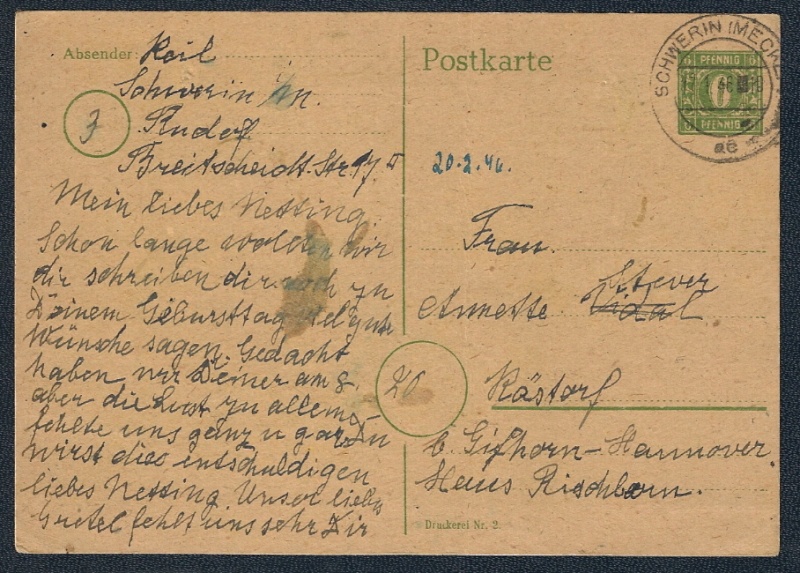 Absender: Keil
Schwerin i/M.
3
Rudolf
Breitscheidt-Str. 17 II
Mein liebes Netting
Schon lange wollten wir
dir schreiben dir noch zu
Deinem Gebursttag viel gute
Wünsche sagen. Gedacht
haben wir Deiner am 8.
aber die Lust zu allem
fehlte uns ganz u gar. Du
wirst dies entschuldigen
liebes Netting Unser liebe
Gretel fehlt uns sehr Dir
Postkarte
SCHWERIN (MECKL
PFENNIG
6
PFENNIG
ae
20.2.46.
Frau.
Stever
Annette Vidal
20
Rästorf
b. Gifhorn-Hannover.
Haus Rischborn.
Druckerei Nr. 2.